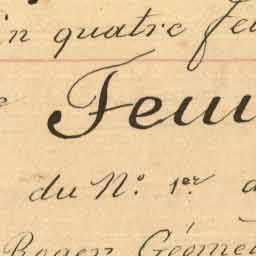 in quatre Feu
Feui
du N.º 1er
Roger Géomè